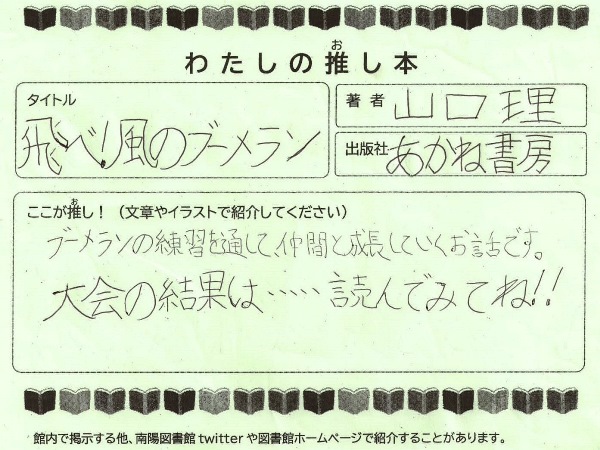 わたしの推し本
タイトル
飛べ!風のブーメラン
著者 山口 理
出版社 あかね書房
ここが推し!(文章やイラストで紹介してください)
ブーメランの練習を通して、仲間と成長していくお話です。
大会の結果は……読んでみてね!!
館内で掲示する他、南陽図書館twitterや図書館ホームページで紹介することがあります。